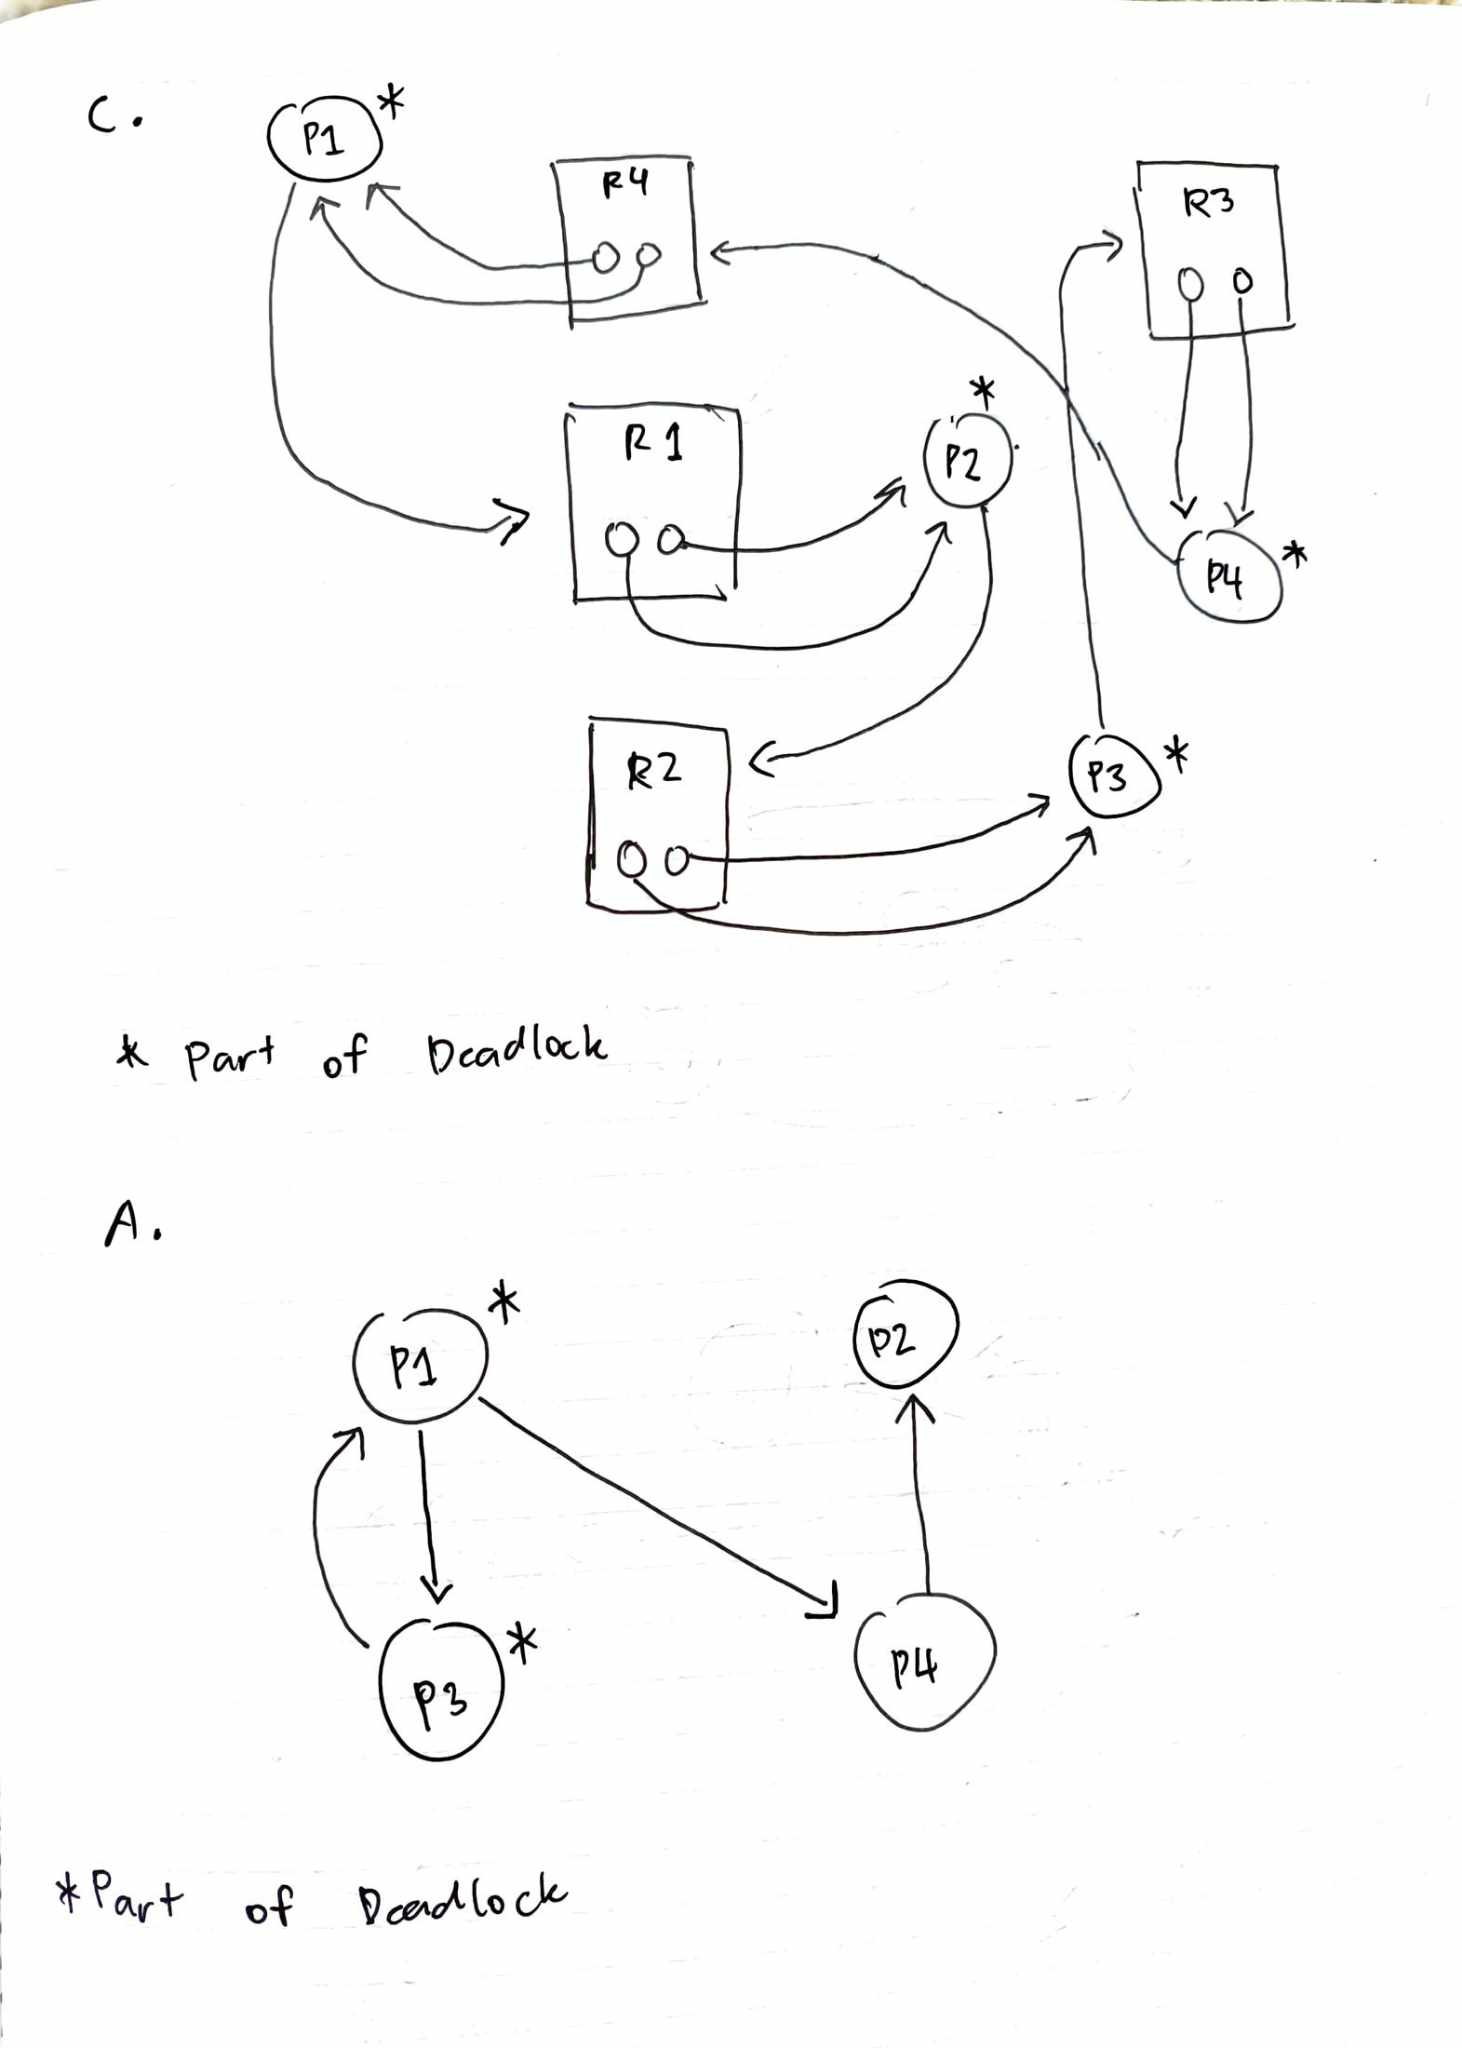 C.
P1 *
R4
R3
R1
*
P2
P4 *
R2
P3 *
* Part of Deadlock
A.
P1 *
P2
P3 *
P4
*Part of Deadlock